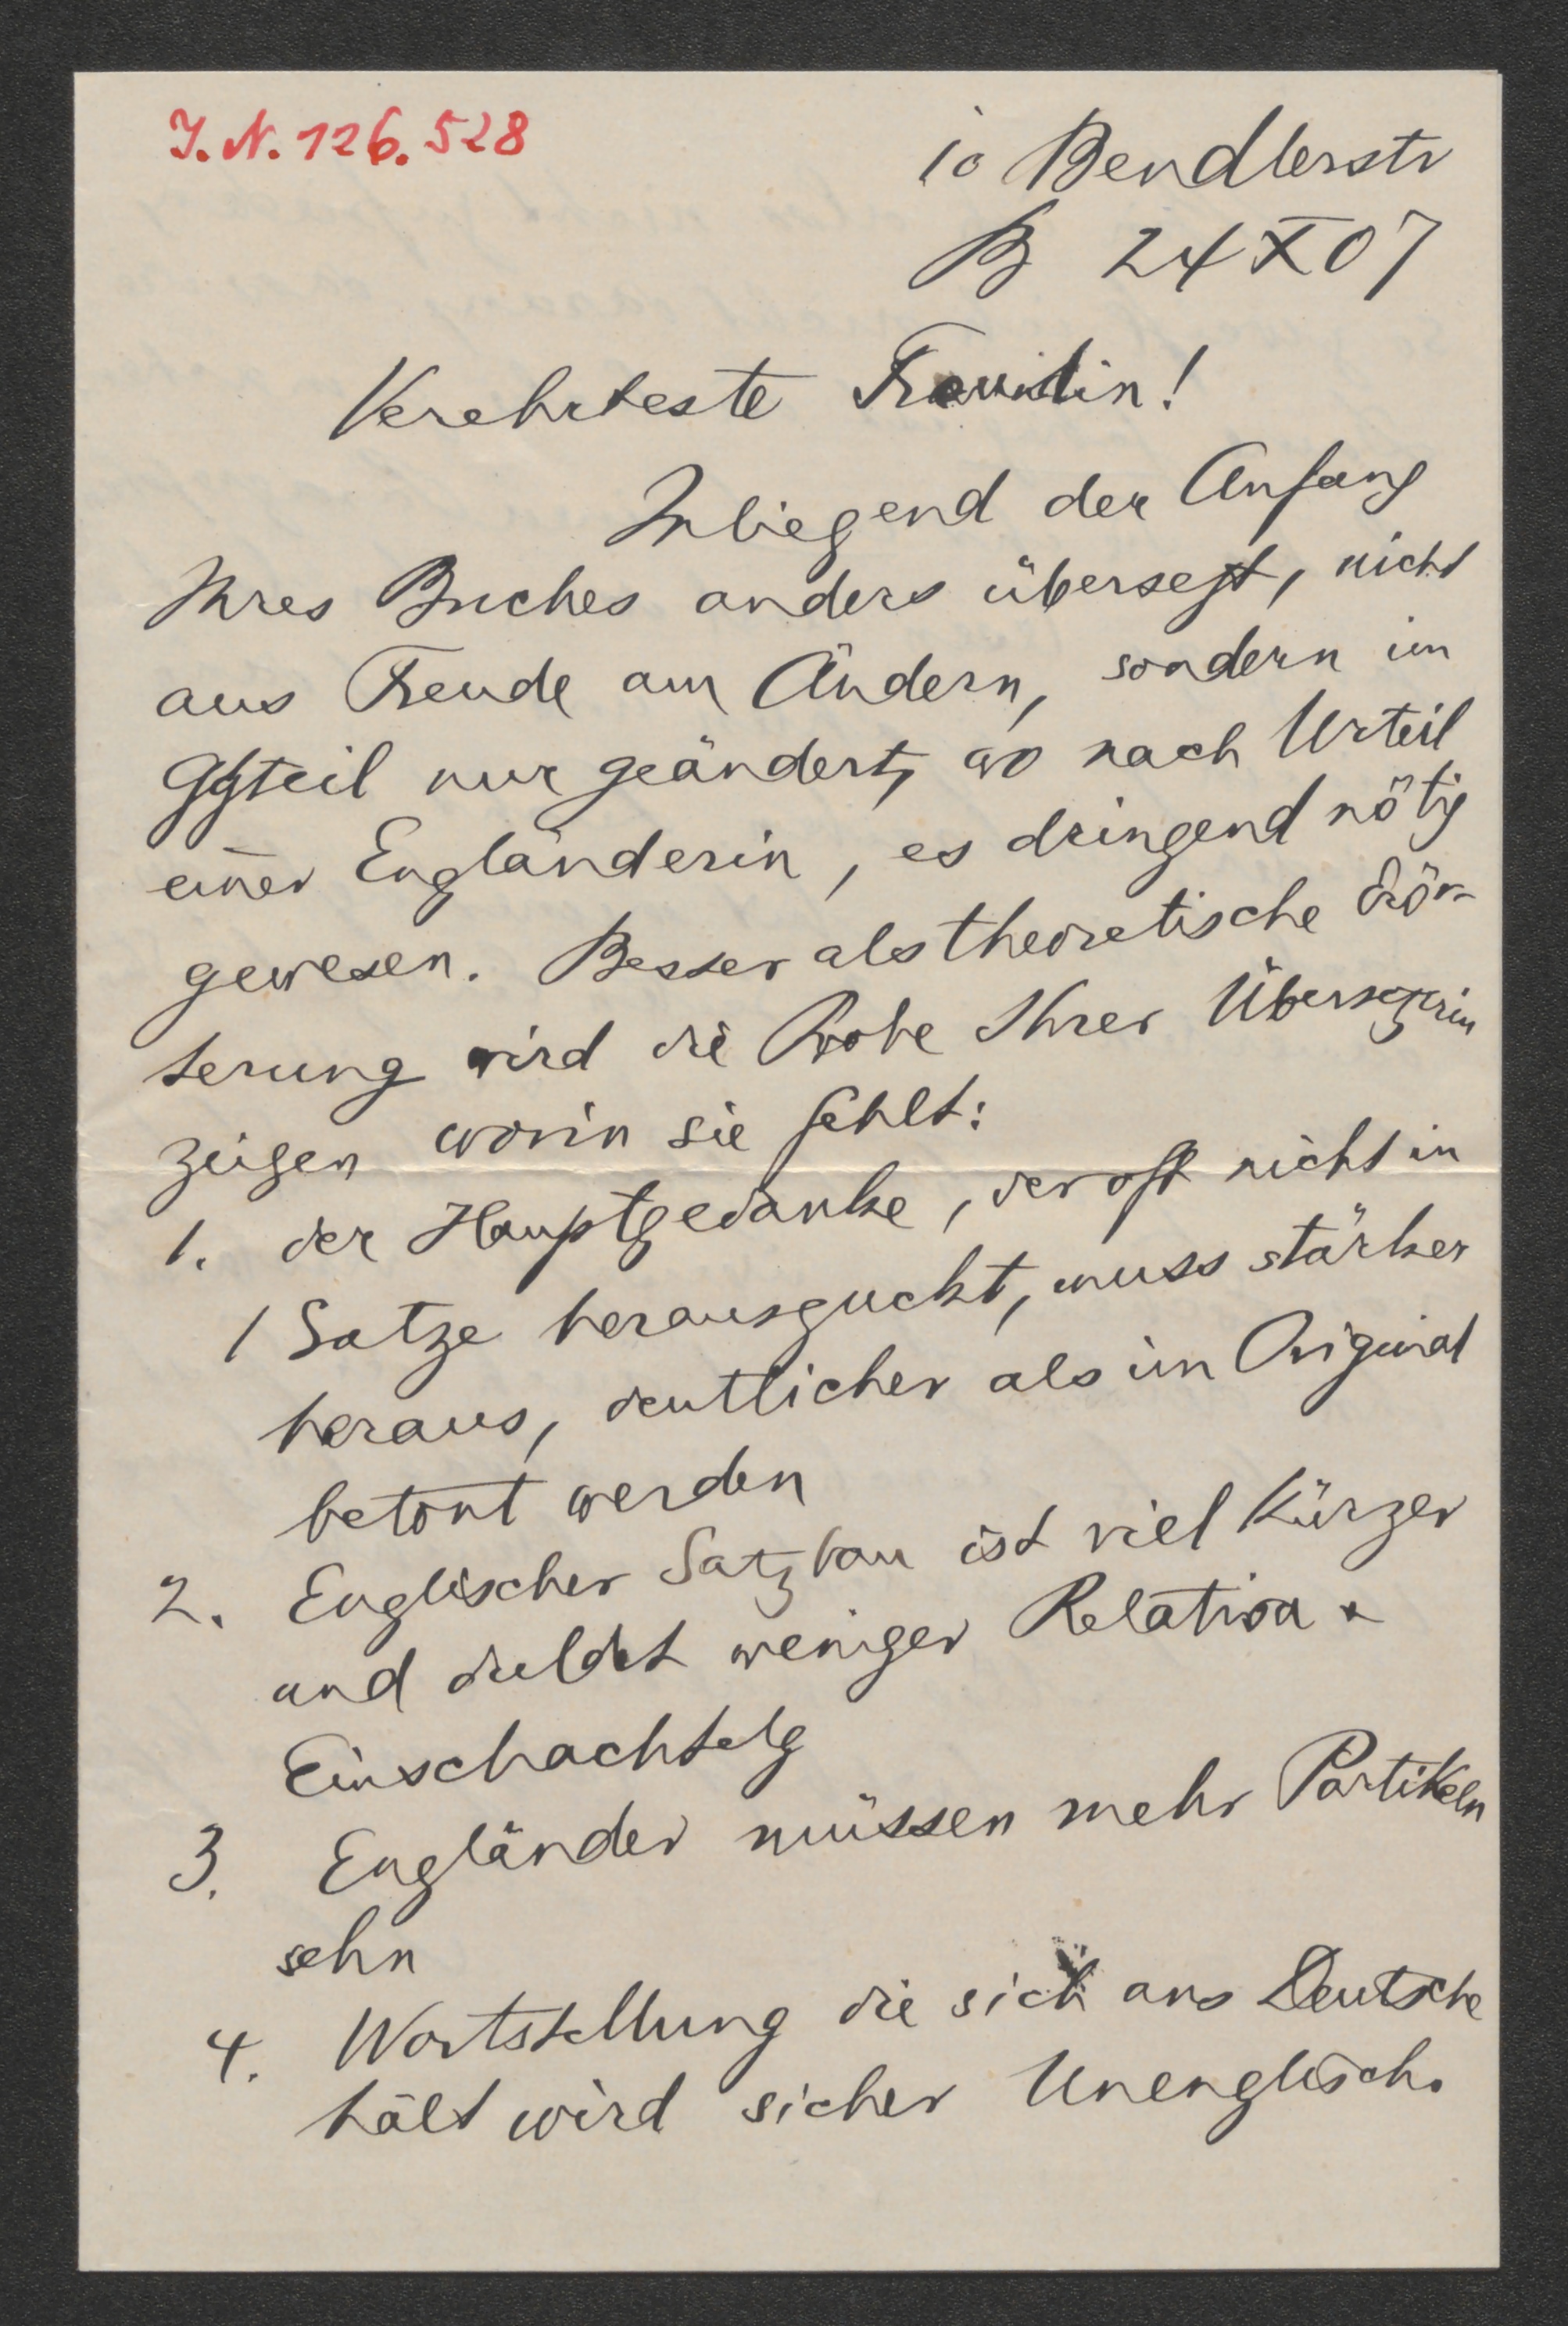 J. N. 126.528
10 Bendlerstr
B 24 X 07
Verehrteste Freundin!
Inliegend der Anfang
Ihres Buches anders übersetzt, nicht
aus Freude am Ändern, sondern im
Ggteil nur geändert, wo nach Urteil
einer Engländerin, es dringend nötig
gewesen. Besser als theoretische Erör-
terung wird die Probe Ihrer Übersetzerin
zeigen worin sie fehlt:
1. der Hauptgedanke, der oft nicht in
1 Satze herausguckt, muss stärker
heraus, deutlicher als im Original
betont werden
2. Englischer Satzbau ist viel kürzer
und duldet weniger Relativa &
Einschachtelg
3. Engländer müssen mehr Partikeln
sehn
4. Wortstellung die sich ans Deutsche
hält wird sicher Unenglisch.